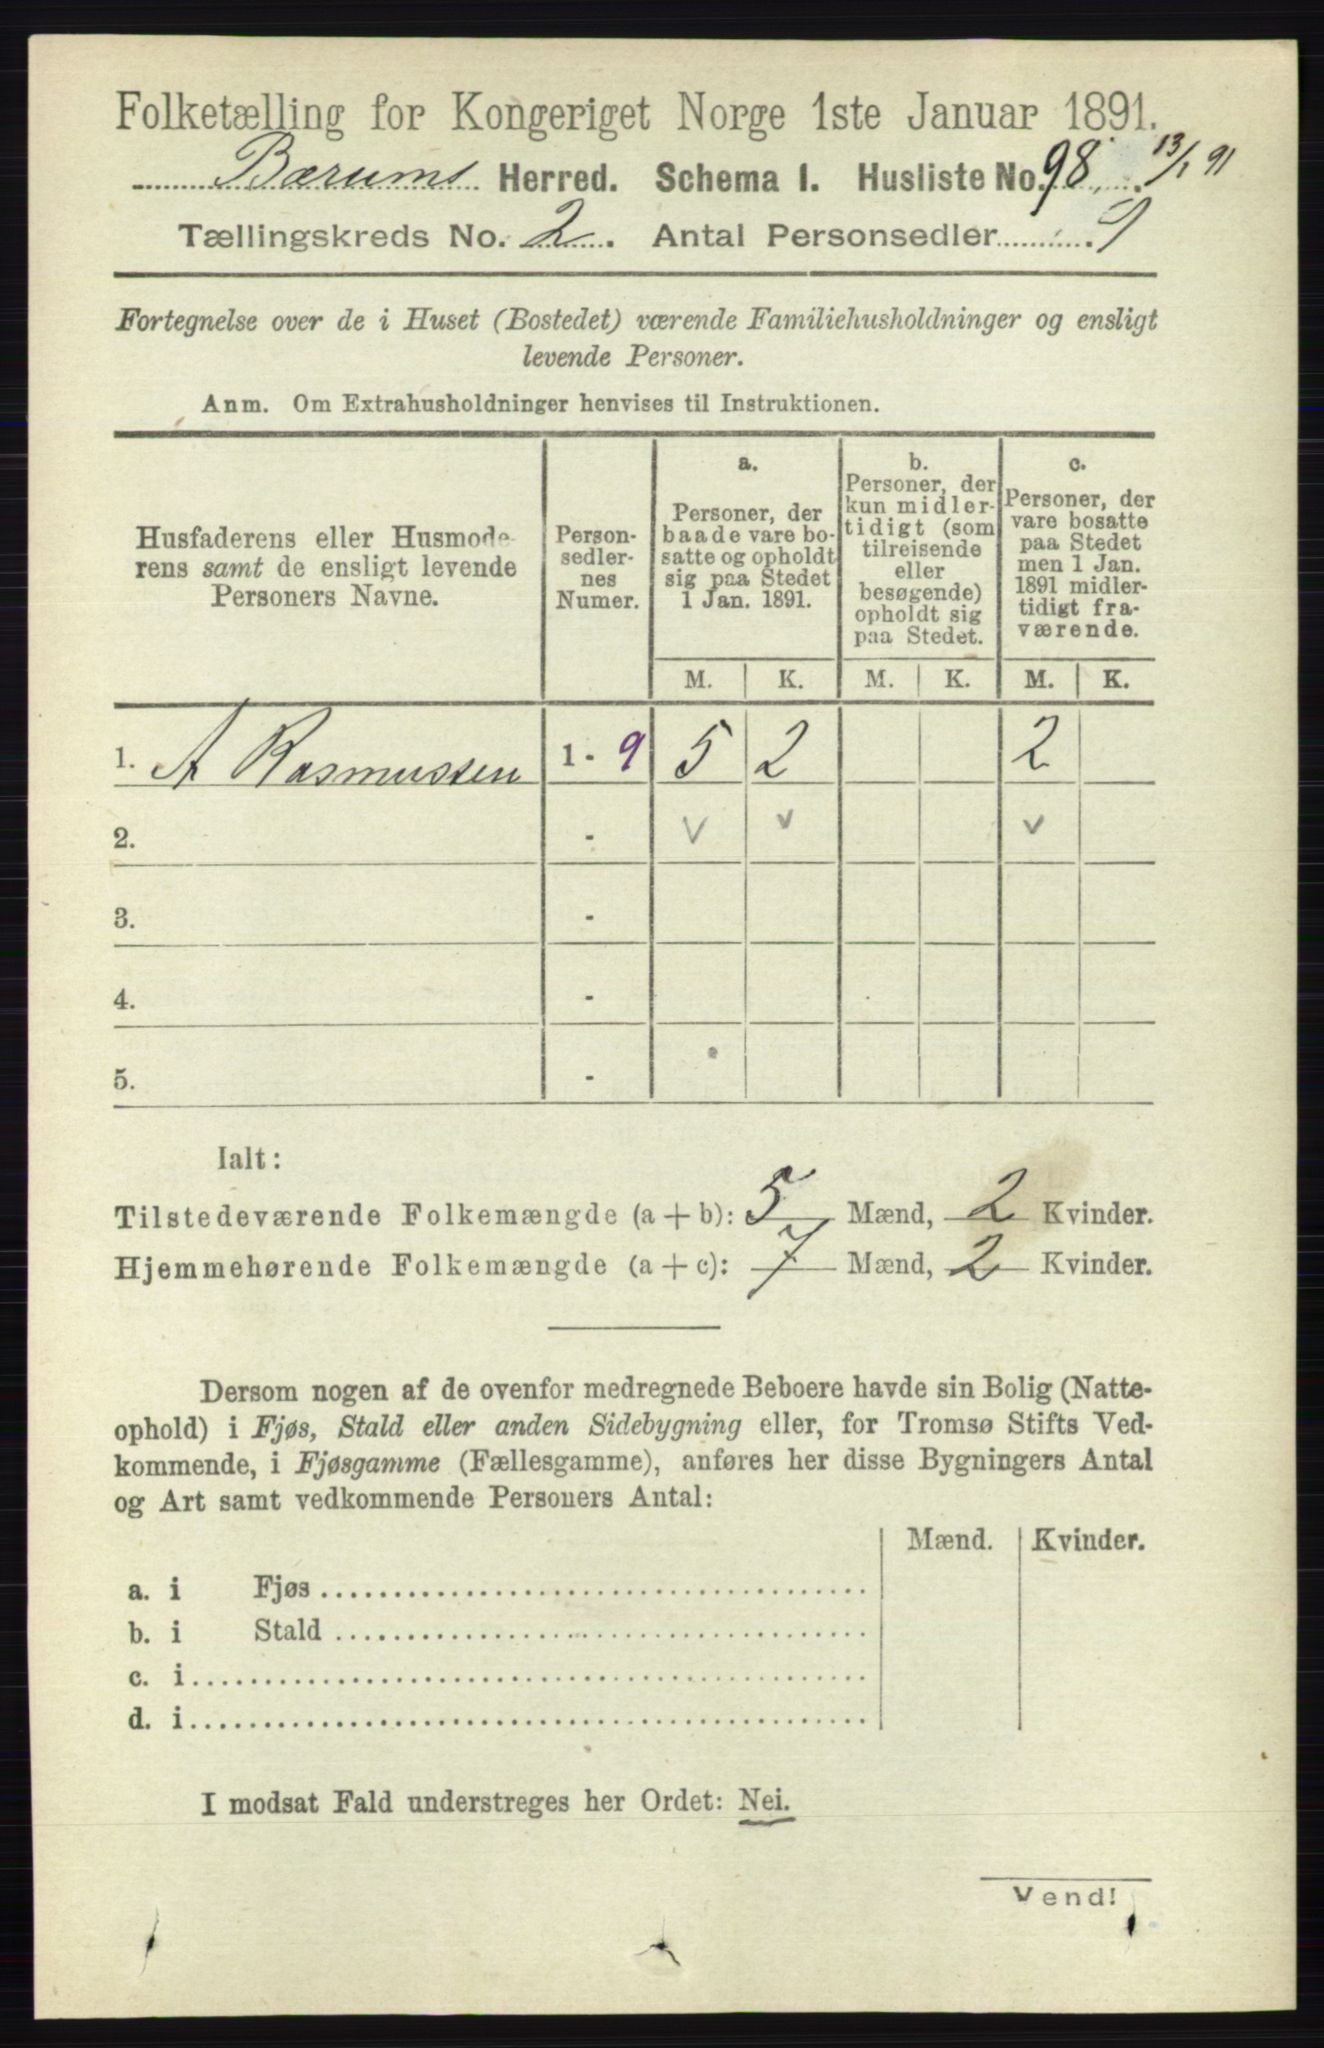 Folketælling for Kongeriget Norge 1ste Januar 1891.
Bærums Herred. Schema I. Husliste No. 98 13/1 91
Tællingskreds No. 2. Antal Personsedler 9
Fortegnelse over de i Huset (Bostedet) værende Familiehusholdninger og ensligt
levende Personer.
Anm. Om Extrahusholdninger henvises til Instruktionen.
Husfaderens eller Husmode-
rens samt de ensligt levende
Personers Navne.
Person-
sedler-
nes
Numer.
a.
Personer, der
baade vare bo-
satte og opholdt
sig paa Stedet
1 Jan. 1891.
b.
Personer, der
kun midler-
tidigt (som
tilreisende
eller
besøgende)
opholdt sig
paa Stedet.
c.
Personer, der
vare bosatte
paa Stedet
men 1 Jan.
1891 midler-
tidigt fra-
værende.
M. K. M. K. M. K.
1. A Rasmussen 1 - 9 5 2 2
2. - v v v
3. -
4. -
5. -
Ialt:
Tilstedeværende Folkemængde (a + b): 5 Mænd, 2 Kvinder.
Hjemmehørende Folkemængde (a + c): 7 Mænd, 2 Kvinder.
Dersom nogen af de ovenfor medregnede Beboere havde sin Bolig (Natte-
ophold) i Fjøs, Stald eller anden Sidebygning eller, for Tromsø Stifts Ved-
kommende, i Fjøsgamme (Fællesgamme), anføres her disse Bygningers Antal
og Art samt vedkommende Personers Antal:
Mænd. Kvinder.
a. i Fjøs
b. i Stald
c. i
d. i
I modsat Fald understreges her Ordet: Nei.
Vend!